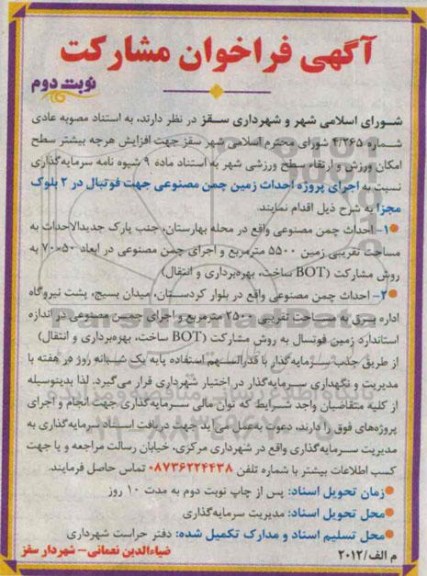 آگهی فراخوان مشارکت
نوبت دوم
شورای اسلامی شهر و شهرداری سقز در نظر دارند، به استناد مصوبه عادی
شماره ۴/۲۶۵ شورای محترم اسلامی شهر سقز جهت افزایش هرچه بیشتر سطح
امکان ورزش و ارتقاء سطح ورزشی شهر به استناد ماده ۹ شیوه نامه سرمایه‌گذاری
نسبت به اجرای پروژه احداث زمین چمن مصنوعی جهت فوتبال در ۲ بلوک
مجزا به شرح ذیل اقدام نمایند.
۱- احداث چمن مصنوعی واقع در محله بهارستان، جنب پارک جدیدالاحداث به
مساحت تقریبی زمین ۵۵۰۰ مترمربع و اجرای چمن مصنوعی در ابعاد ۵۰×۷۰ به
روش مشارکت (BOT ساخت، بهره‌برداری و انتقال)
۲- احداث چمن مصنوعی واقع در بلوار کردستان، میدان بسیج، پشت نیروگاه
اداره برق به مساحت تقریبی ۲۵۰۰ مترمربع و اجرای چمن مصنوعی در اندازه
استاندارد زمین فوتسال به روش مشارکت (BOT ساخت، بهره‌برداری و انتقال)
از طریق جذب سرمایه‌گذار با قدرالسهم استفاده پایه یک شبانه روز در هفته با
مدیریت و نگهداری سرمایه‌گذار در اختیار شهرداری قرار می‌گیرد. لذا بدینوسیله
از کلیه متقاضیان واجد شرایط که توان مالی سرمایه‌گذاری جهت انجام و اجرای
پروژه‌های فوق را دارند، دعوت به‌عمل می‌آید جهت دریافت اسناد سرمایه‌گذاری به
مدیریت سرمایه‌گذاری واقع در شهرداری مرکزی، خیابان رسالت مراجعه و یا جهت
کسب اطلاعات بیشتر با شماره تلفن ۰۸۷۳۶۲۲۴۴۳۸ تماس حاصل فرمایند.
زمان تحویل اسناد: پس از چاپ نوبت دوم به مدت ۱۰ روز
محل تحویل اسناد: مدیریت سرمایه‌گذاری
محل تسلیم اسناد و مدارک تکمیل شده: دفتر حراست شهرداری
م الف/۲۰۱۲
ضیاءالدین نعمانی- شهردار سقز